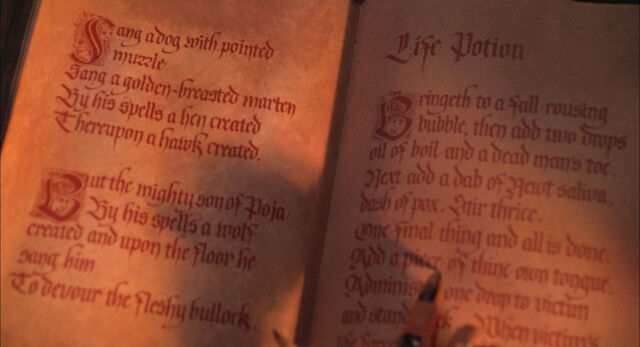 Sang a dog with pointed
muzzle
Sang a golden-breasted marten
By his spells a hen created
Thereupon a hawk created.
But the mighty son of Poja
By his spells a wolf
created and upon the floor he
sang him
To devour the fleshy bullock.
Life Potion
Bringeth to a full rousing
bubble, then add two drops
oil of boil and a dead man's toe.
Next add a dab of Newt saliva,
dash of pox. Stir thrice.
One final thing and all is done.
Add a piece of thine own tongue.
one drop to victim
and stand When victim's